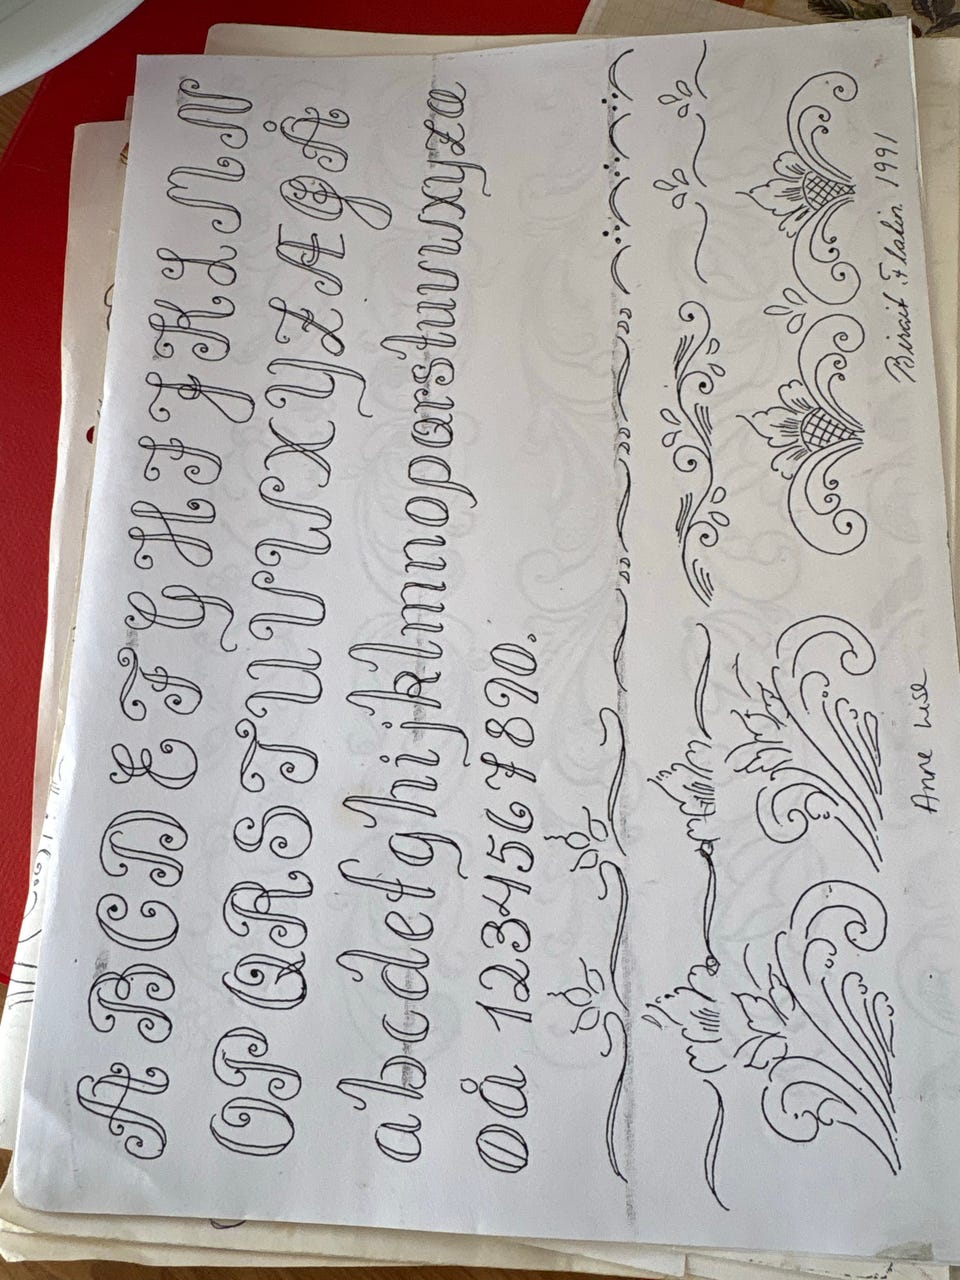 A B C D E F G H I J K L M N
O P Q R S T U V W X Y Z Æ Ø Å
a b c d e f g h i j k l m n o p q r s t u v w x y z æ
ø å 1 2 3 4 5 6 7 8 9 0.
Anne Lise
1991